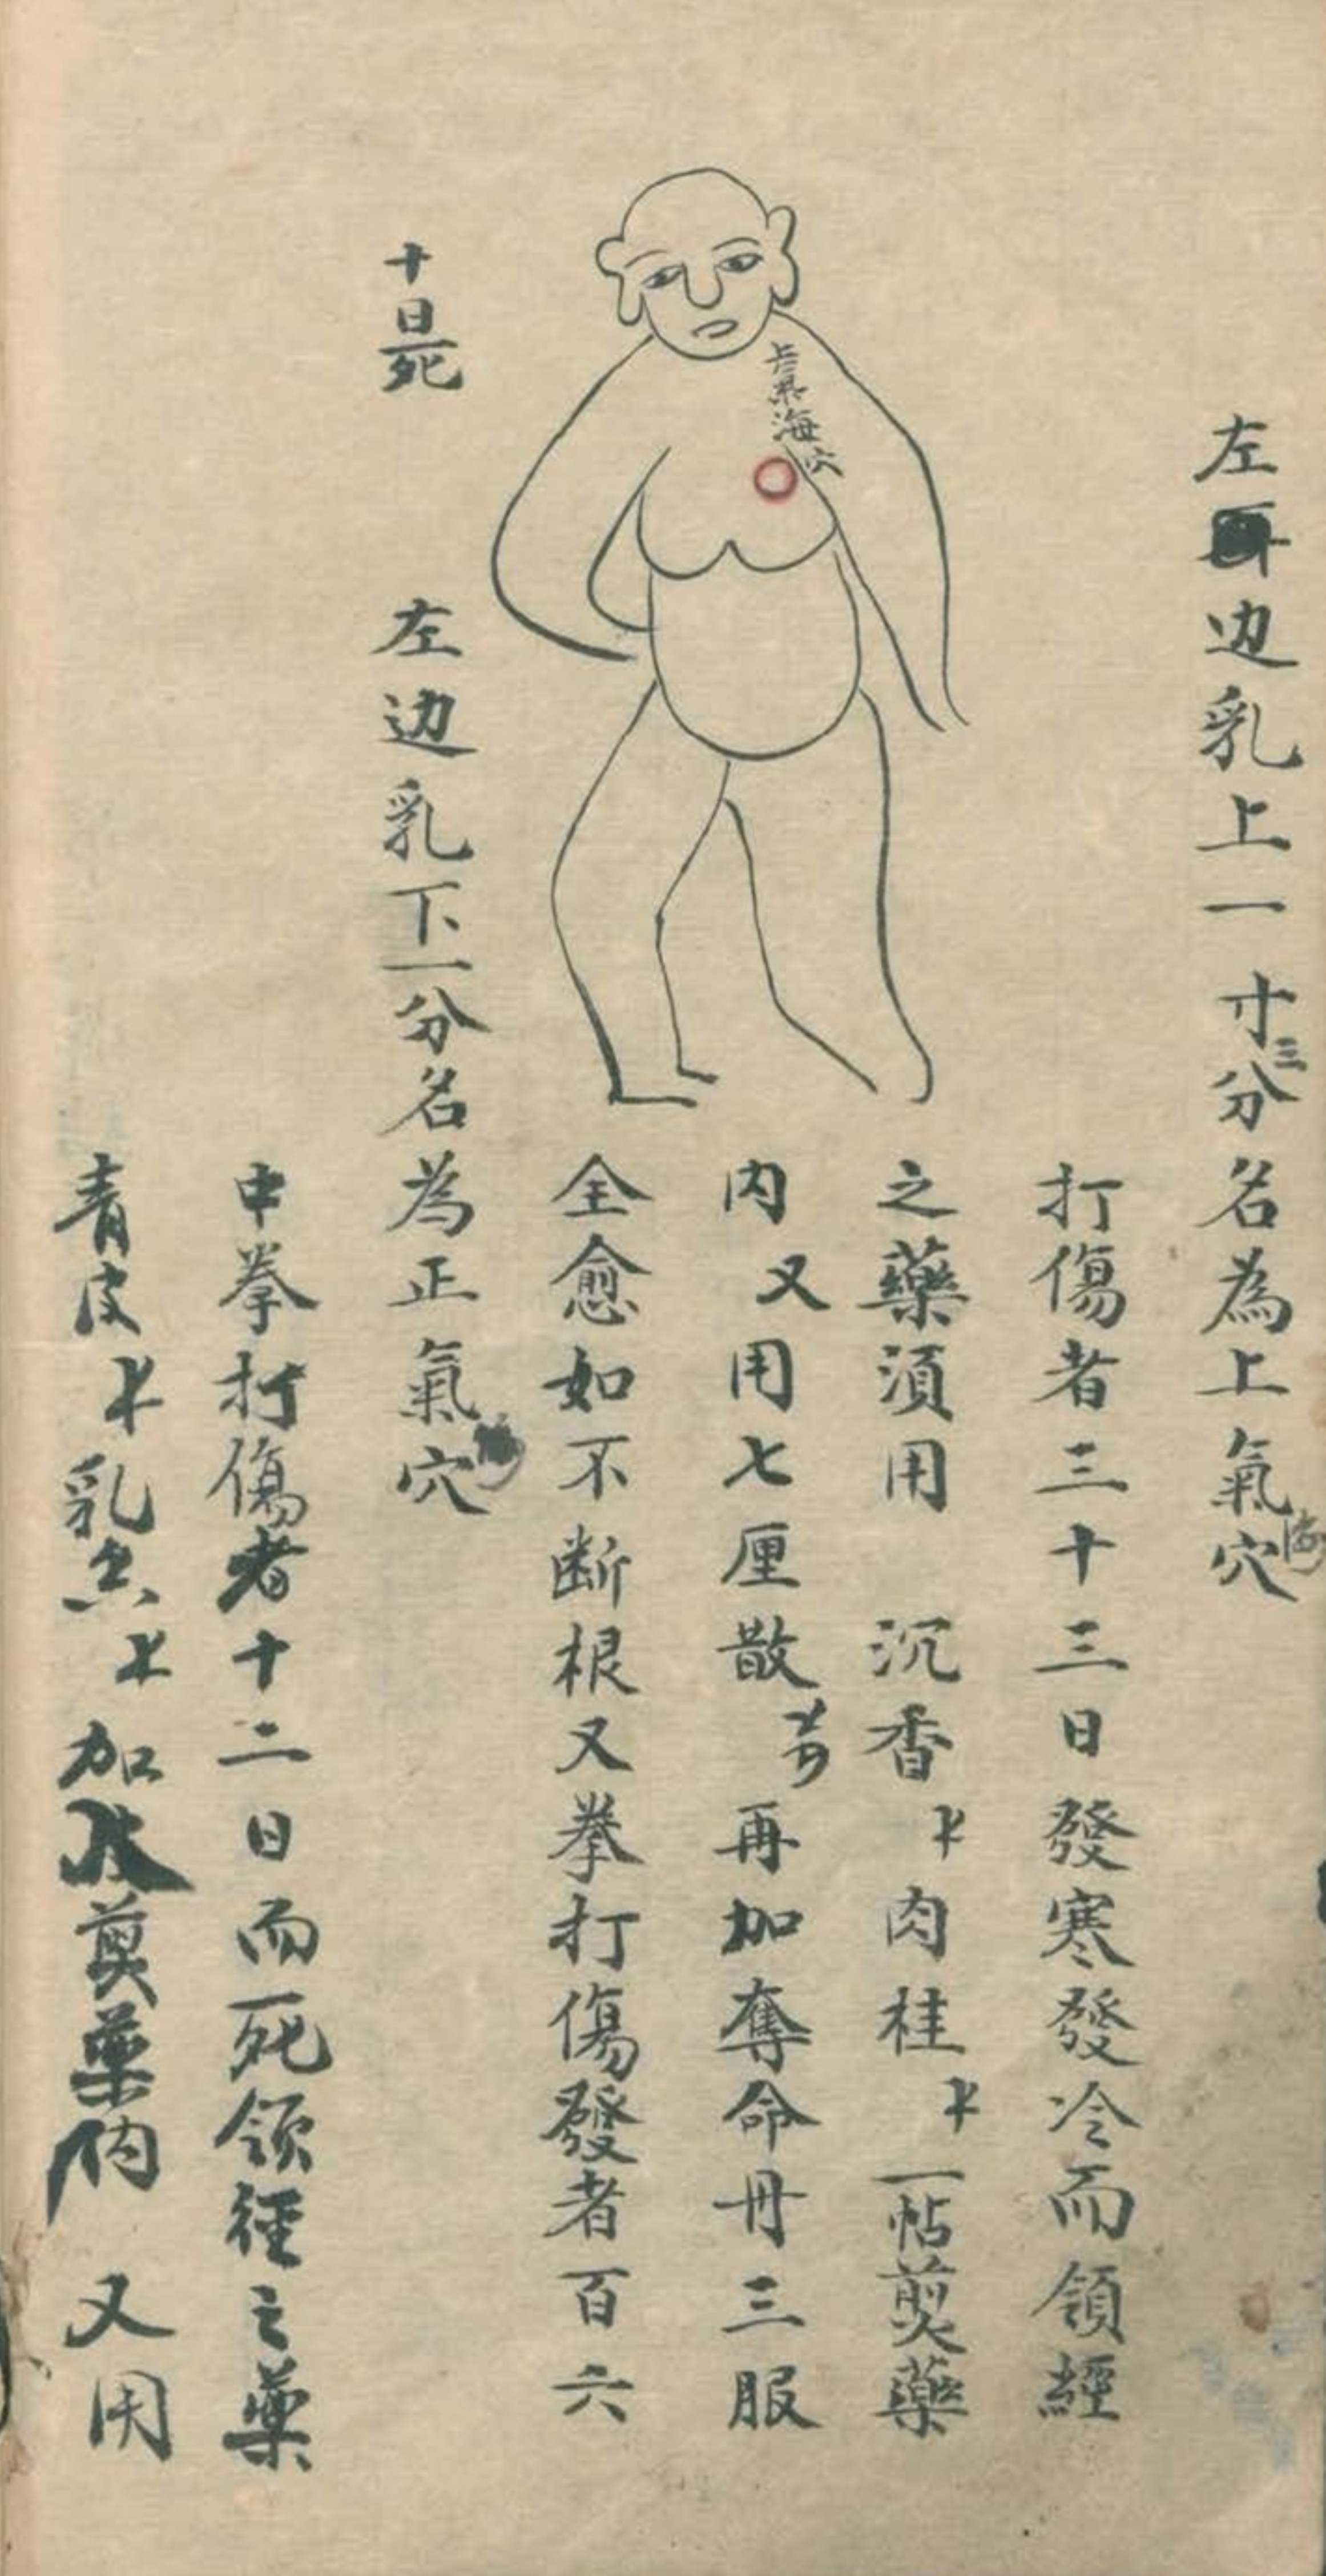 左边乳上一寸三分名為上氣海穴
打傷者三十三日發寒發冷而領經
之藥須用 沉香 肉桂 一帖煎藥
内又用七厘散 再加奪命丹三服
全愈如不断根又拳打傷發者百六
十日死
上氣海穴
左边乳下一分名為正氣穴
中拳打傷者十二日而死領徑之藥
青皮 乳香 加 煎藥内 又用